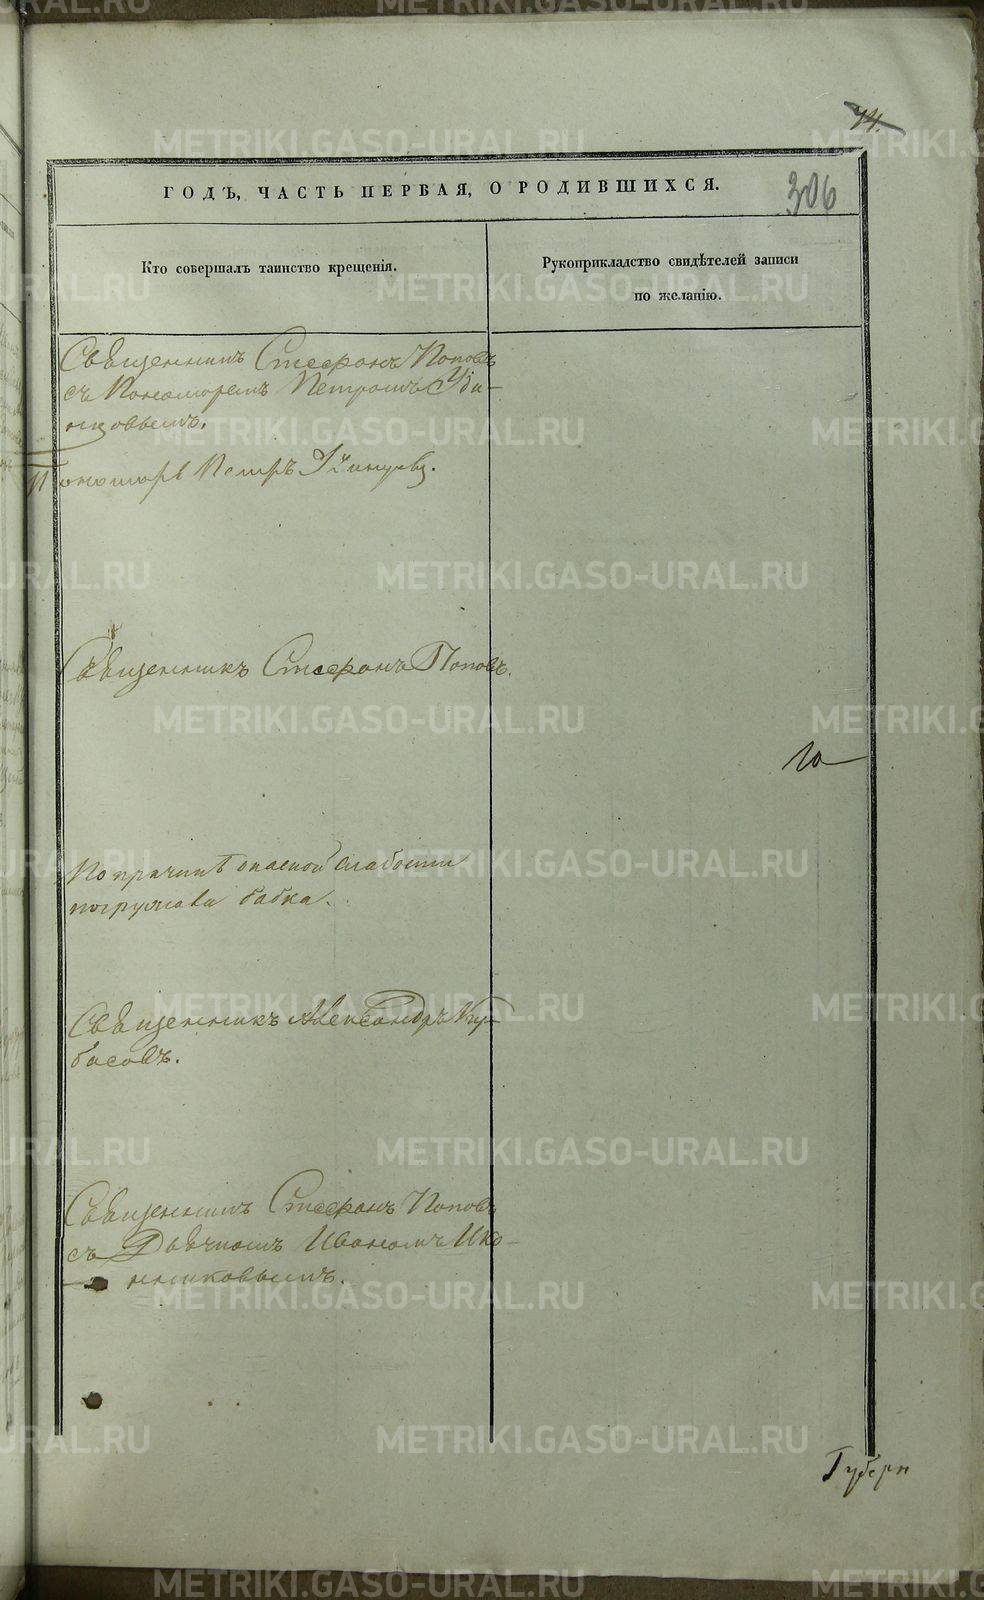 74.
ГОДЪ, ЧАСТЬ ПЕРВАЯ, О РОДИВШИХСЯ.
306
Кто совершалъ таинство крещенія.
Рукоприкладство свидѣтелей записи
по желанію.
Священникъ Стефанъ Поповъ
съ Пономаремъ Петромъ Уди-
нцовымъ.
Пономарь Петръ Удинцевъ.
Священникъ Стефанъ Поповъ.
По причинѣ опасной слабости
погружала бабка.
Священникъ Александръ
басовъ.
Священникъ Стефанъ Поповъ
съ Дьячкомъ Иваномъ Ико-
нниковымъ.
Губерн
METRIKI.GASO-URAL.RU